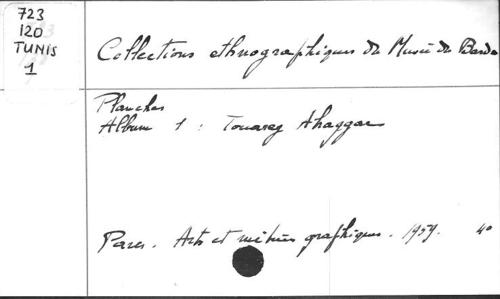 723
120
TUNIS
1
Collections ethnographiques du Musée du Bardo
Planches
Album 1 : Touareg Ahaggar
Paris. Arts et métiers graphiques. 1959. 4°